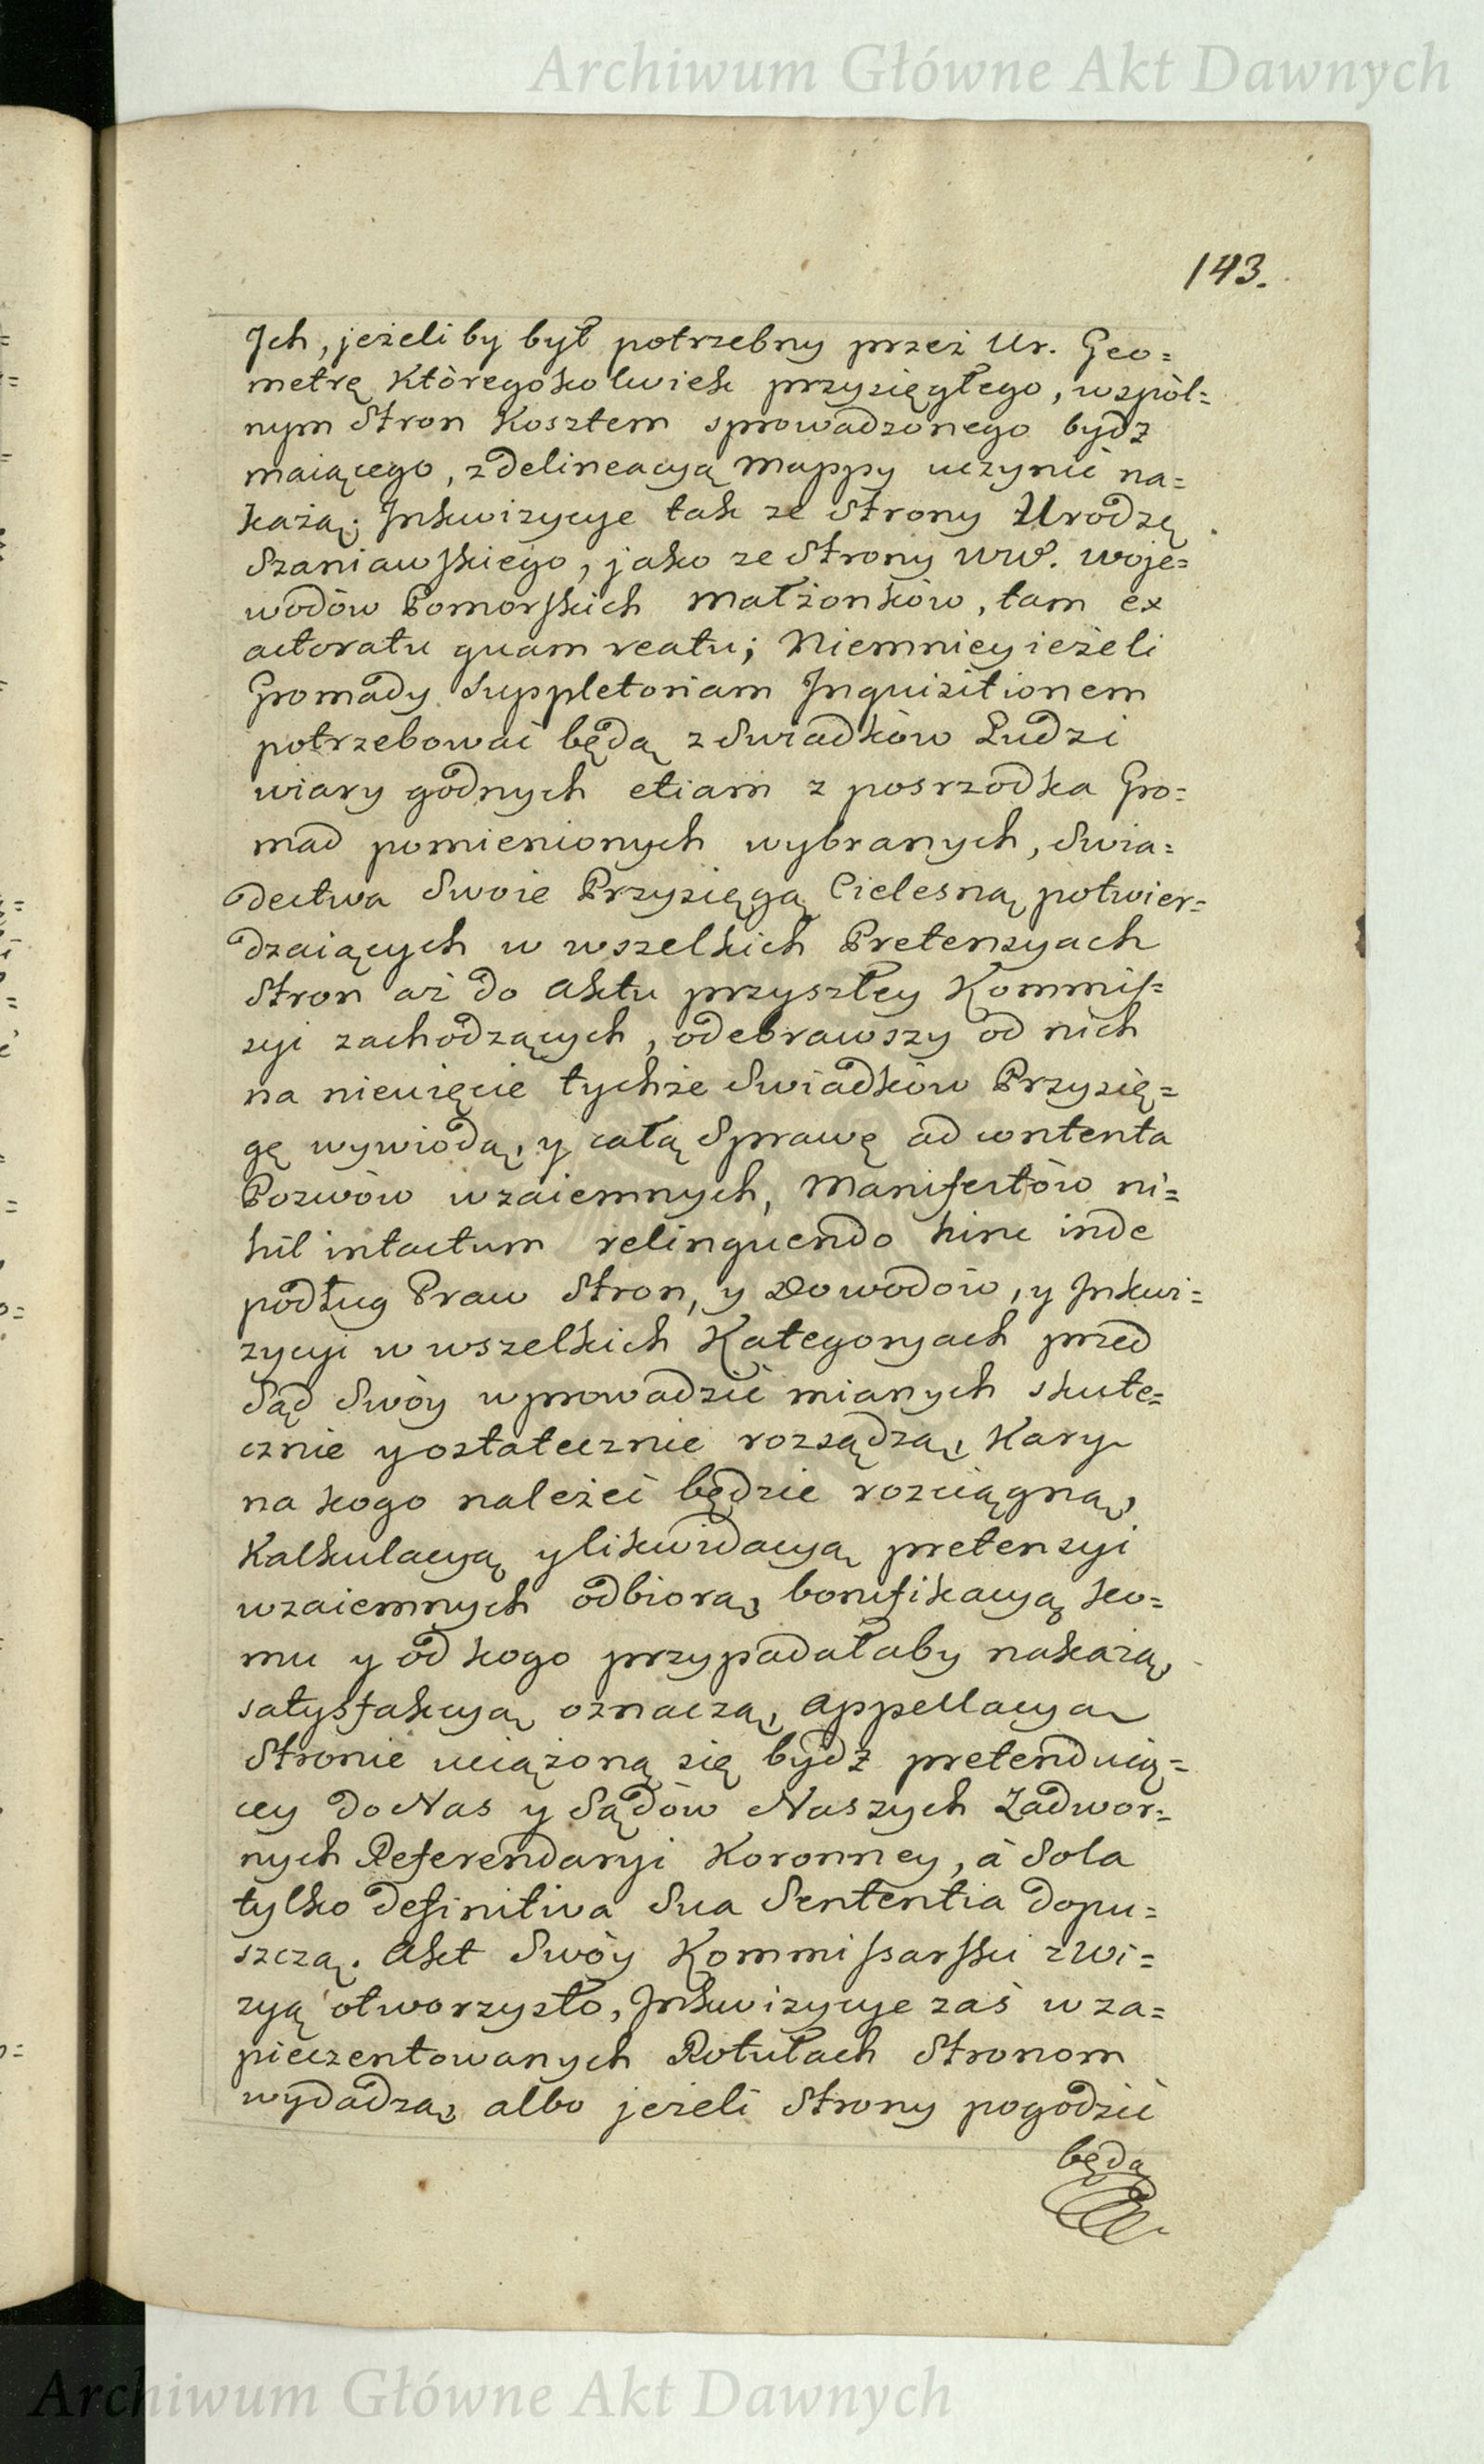 Archiwum Główne Akt Dawnych
143.
Ich, jeżeli by był potrzebny przez Ur. Geo=
metrę któregokolwiek przysięgłego, wspól=
nym Stron Kosztem sprowadzonego bydź
maiącego, z delineacyą Mappy uczynić na=
każą; Inkwizycye tak ze Strony Urodzę
Szaniawskiego, jako ze Strony WW. Woje=
wodów Pomorskich Małżonków, tam ex
actoratu quam reatu; Niemniey ieżeli
Gromady Suppletoriam Inquisitionem
potrzebować będą z Swiadków Ludzi
wiary godnych etiam z posrzodka Gro=
mad pomienionych wybranych, Swia=
dectwa Swoie Przysięgą Cielesną potwier=
dzaiących w wszelkich Pretensyach
Stron aż do Aktu przyszłey Kommis=
syi zachodzących, odebrawszy od nich
na niewzięcie tychże Swiadków Przysię=
gę wywiodą, y całą Sprawę ad contenta
Pozwów wzaiemnych, Manifestów ni=
hil intactum relinquendo hinc inde
podług Praw Stron, y Dowodów, y Inkwi=
zycyi w wszelkich Kategoryach przed
Sąd Swóy wprowadzić mianych skute=
cznie y ostatecznie rozsądzą, Kary
na kogo należeć będzie rozciągną,
Kalkulacyą y likwidacyą pretensyi
wzaiemnych odbiorą, bonifikacyą ko=
mu y od kogo przypadałaby nakażą,
satysfakcyą oznaczą, Appellacya
Stronie uciążoną się bydź pretenduią=
cey do Nas y Sądów Naszych Zadwor=
nych Referendaryi Koronney, à Sola
tylko definitiva Sua Sententia dopu=
szczą. Akt Swóy Kommissarski z Wi=
zyą otworzysto, Inkwizycye zaś w za=
pieczentowanych Rotułach Stronom
wydadzą, albo jeżeli Strony pogodzić
będą
Archiwum Główne Akt Dawnych